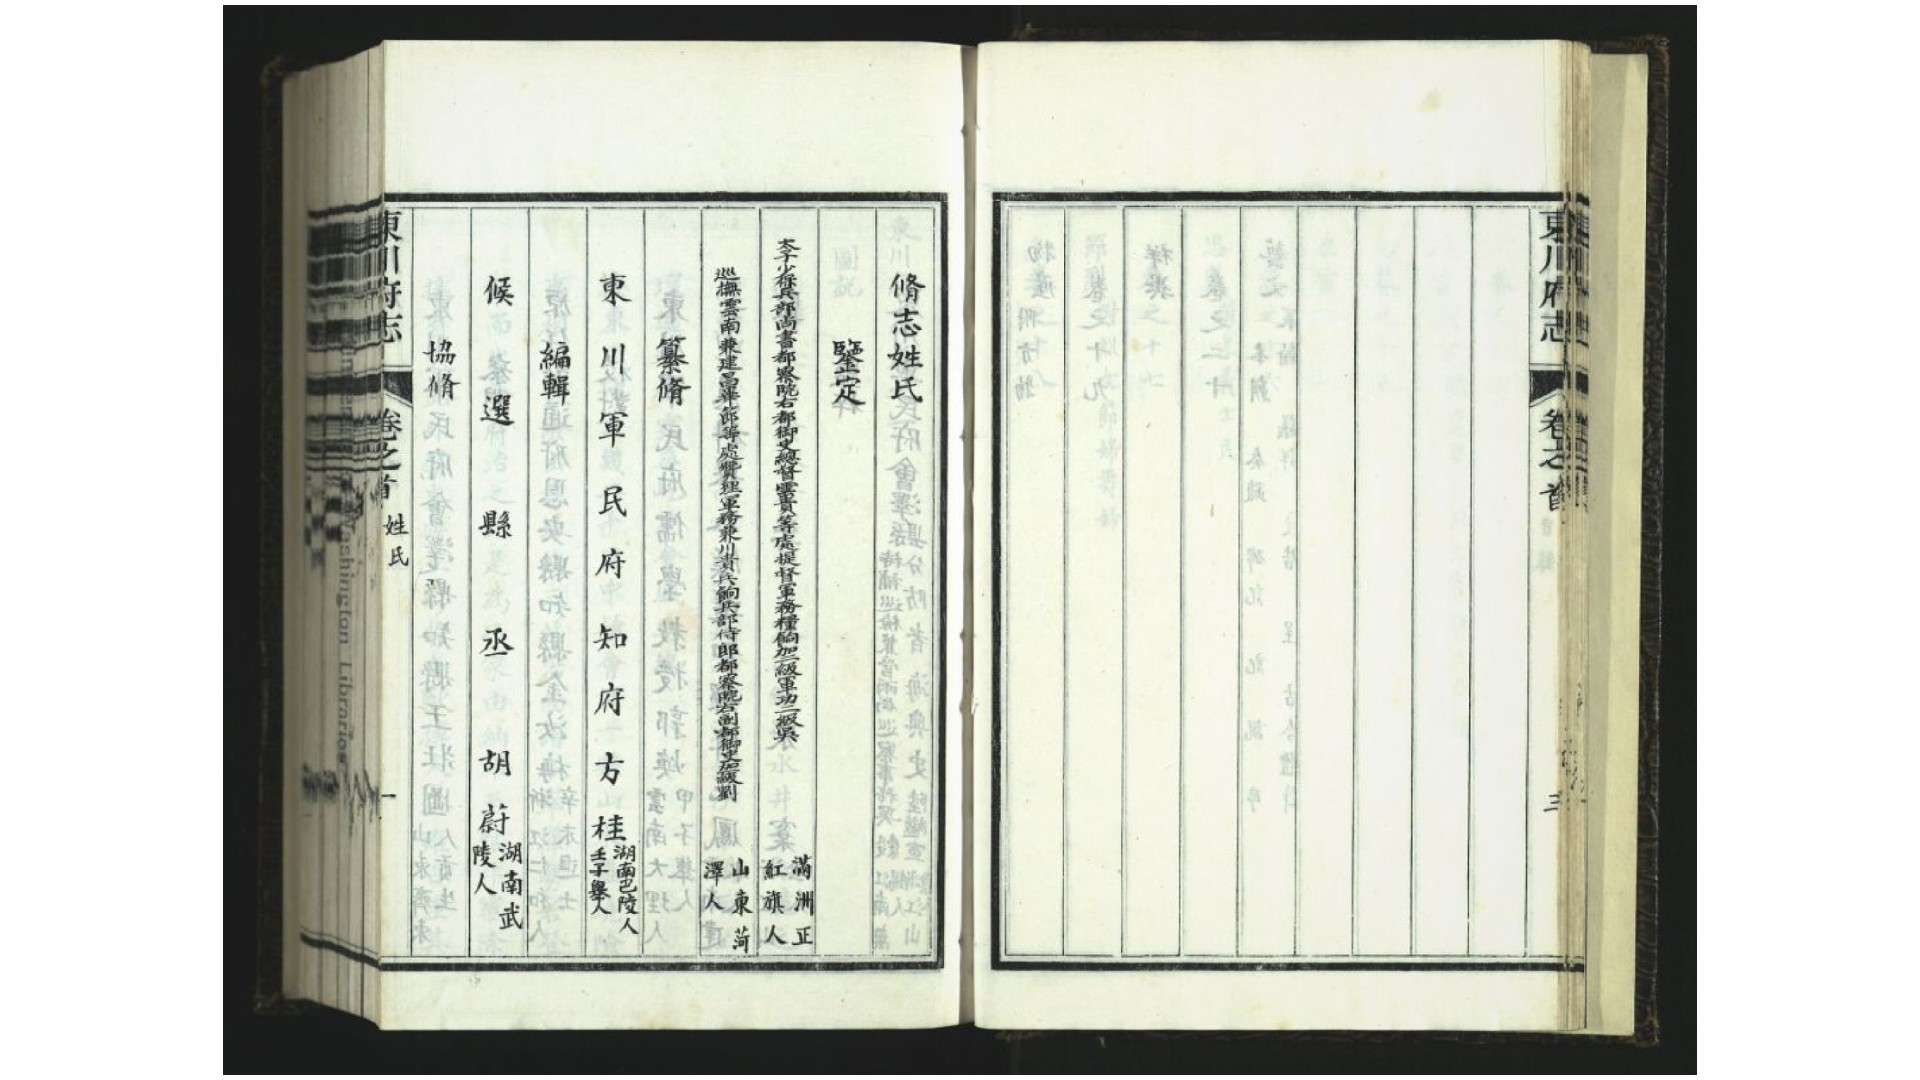 東川府志
卷之首
三
脩志姓氏
鑒定
太子少保兵部尚書都察院右都御史總督雲貴等處提督軍務糧餉加二級軍功二級吳
滿洲正
紅旗人
巡撫雲南兼建昌畢節等處贊理軍務兼川貴兵餉兵部侍郎都察院右副都御史加級劉
山東菏
澤人
纂脩
東川軍民府知府方桂
湖南巴陵人
壬子舉人
編輯
候選縣丞胡蔚
湖南武
陵人
協脩
東川府志
卷之首
姓氏
一